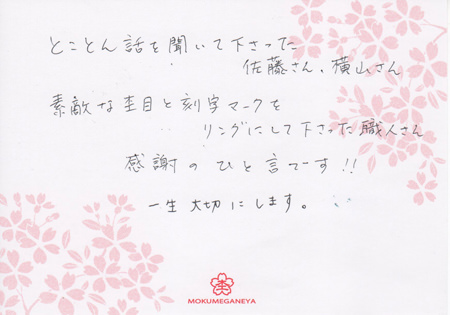 とことん話を聞いて下さった
佐藤さん、横山さん
素敵な杢目と刻字マークを
リングにして下さった職人さん
感謝のひと言です!!
一生大切にします。
杢
MOKUMEGANEYA